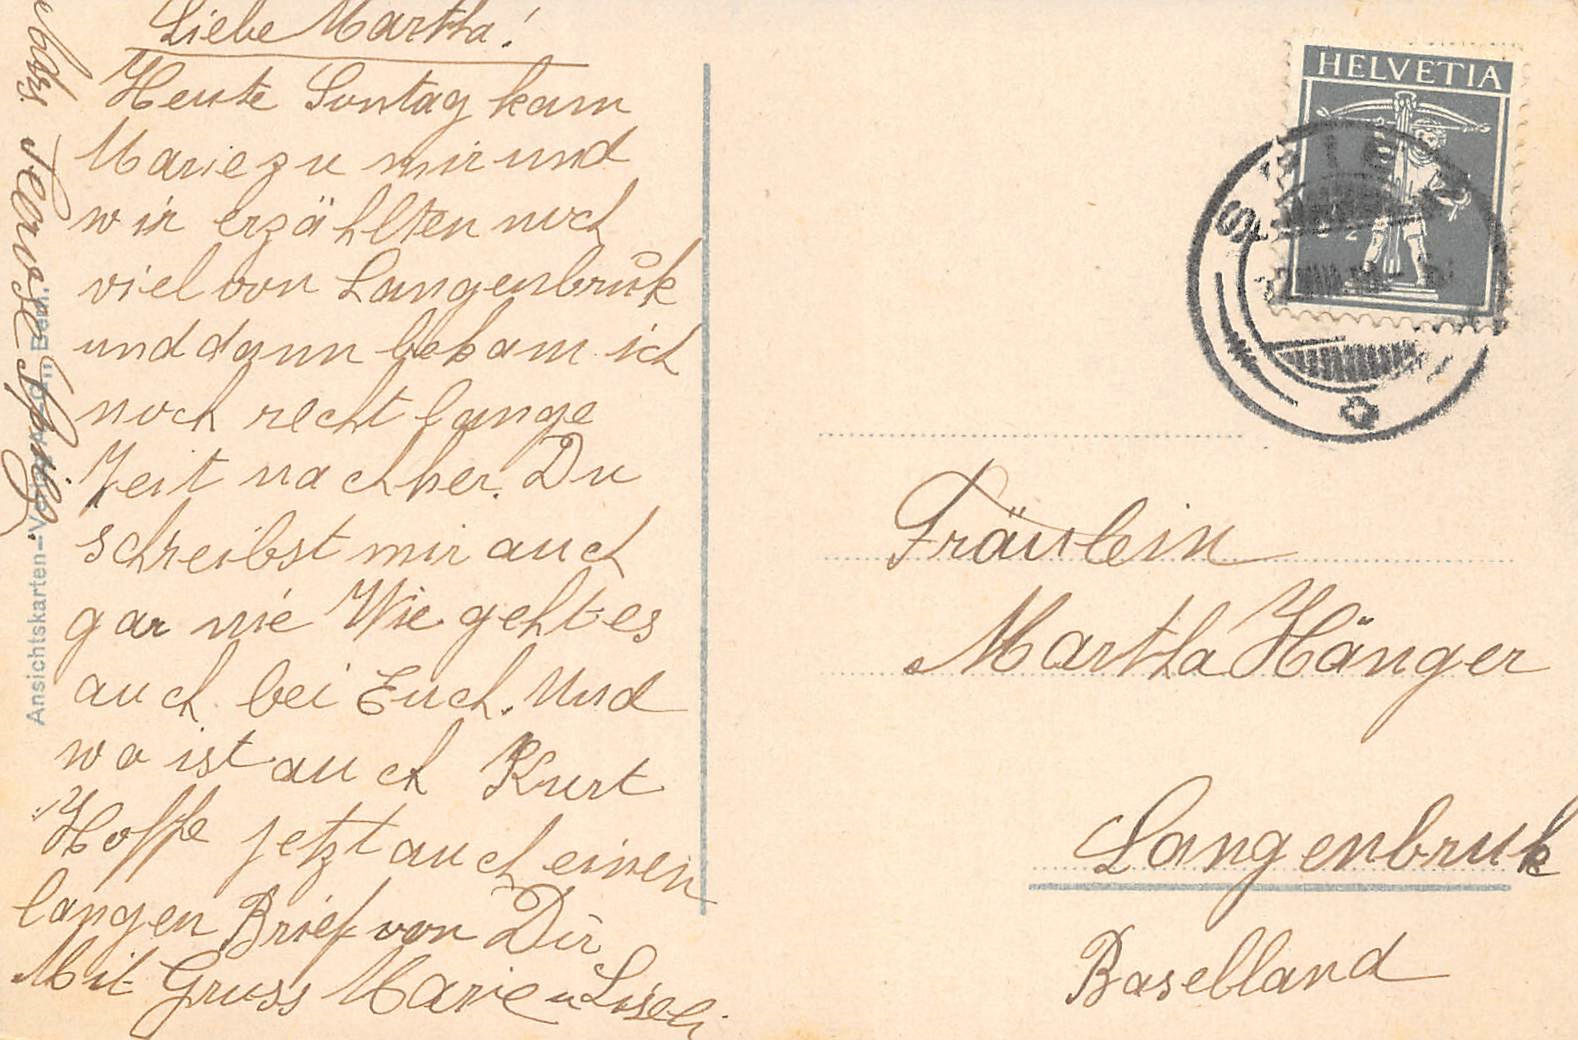 Liebe Martha!
Heute Sontag kam
Marie zu mir und
wir erzählten noch
viel von Langenbruk
und dann bekam ich
noch recht lange
Zeit nachher. Du
schreibst mir auch
gar nie Wie geht es
auch bei Euch. Und
wo ist auch Kurt
Hoffe jetzt auch einen
langen Brief von Dir
Mit Gruss Marie u Liseli
Ansichtskarten-Verlag Bern.
HELVETIA
Fräulein
Martha Hänger
Langenbruk
Baselland